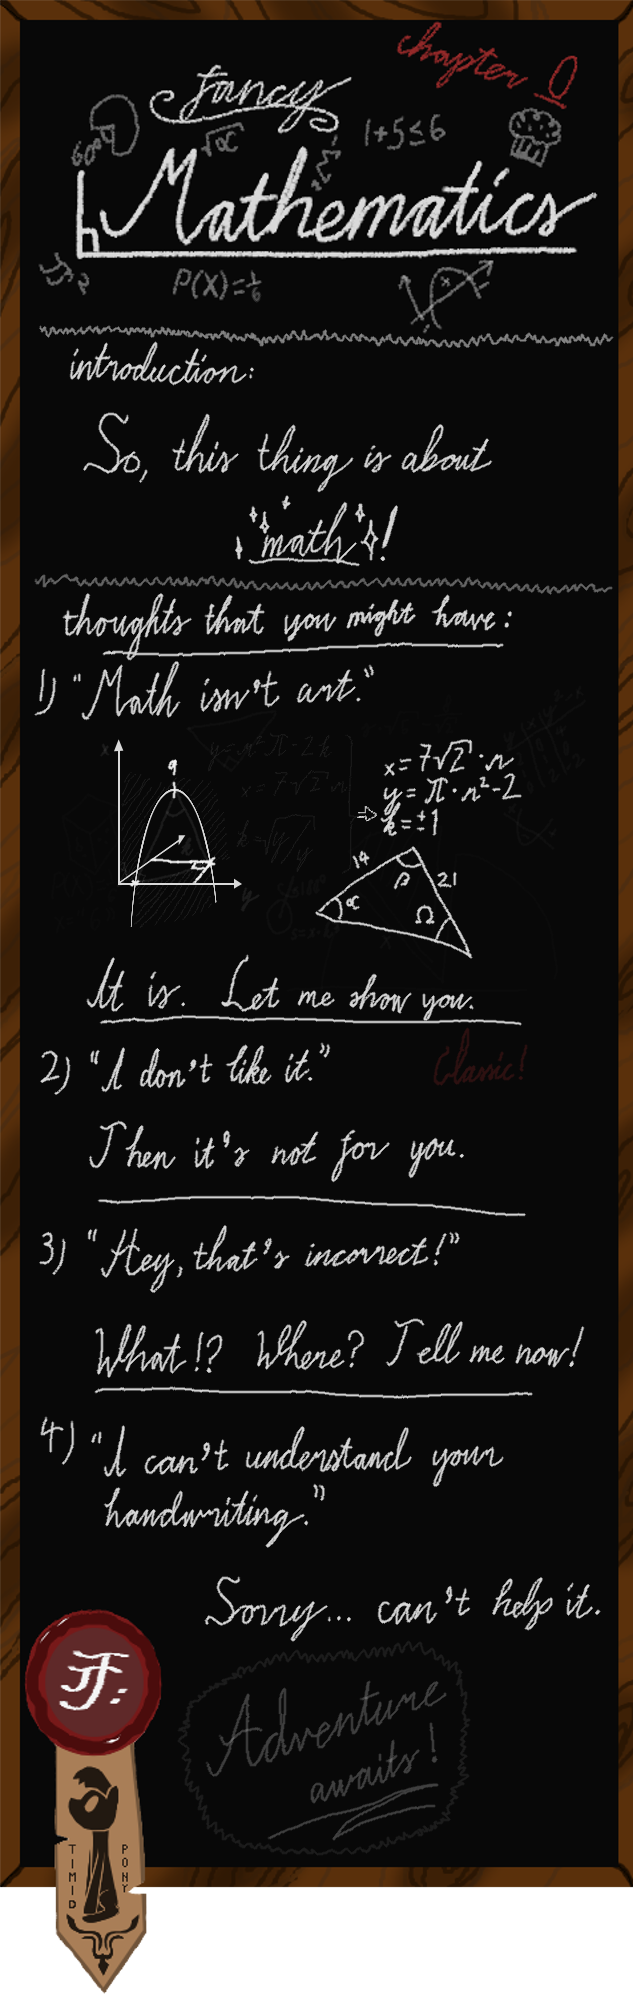 chapter 0
Fancy
60°
√x
1+5≤6
Mathematics
P(X)=1/6
introduction:
So, this thing is about
math!
thoughts that you might have:
1) "Math isn't art."
x
9
y
x=7√2·n
y=π·n²-2
⇒ k=±1
14
β
21
α
Ω
It is. Let me show you.
2) "I don't like it."
Classic!
Then it's not for you.
3) "Hey, that's incorrect!"
What!? Where? Tell me now!
4) "I can't understand your
handwriting."
Sorry... can't help it.
Adventure
awaits!
TIMID
PONY